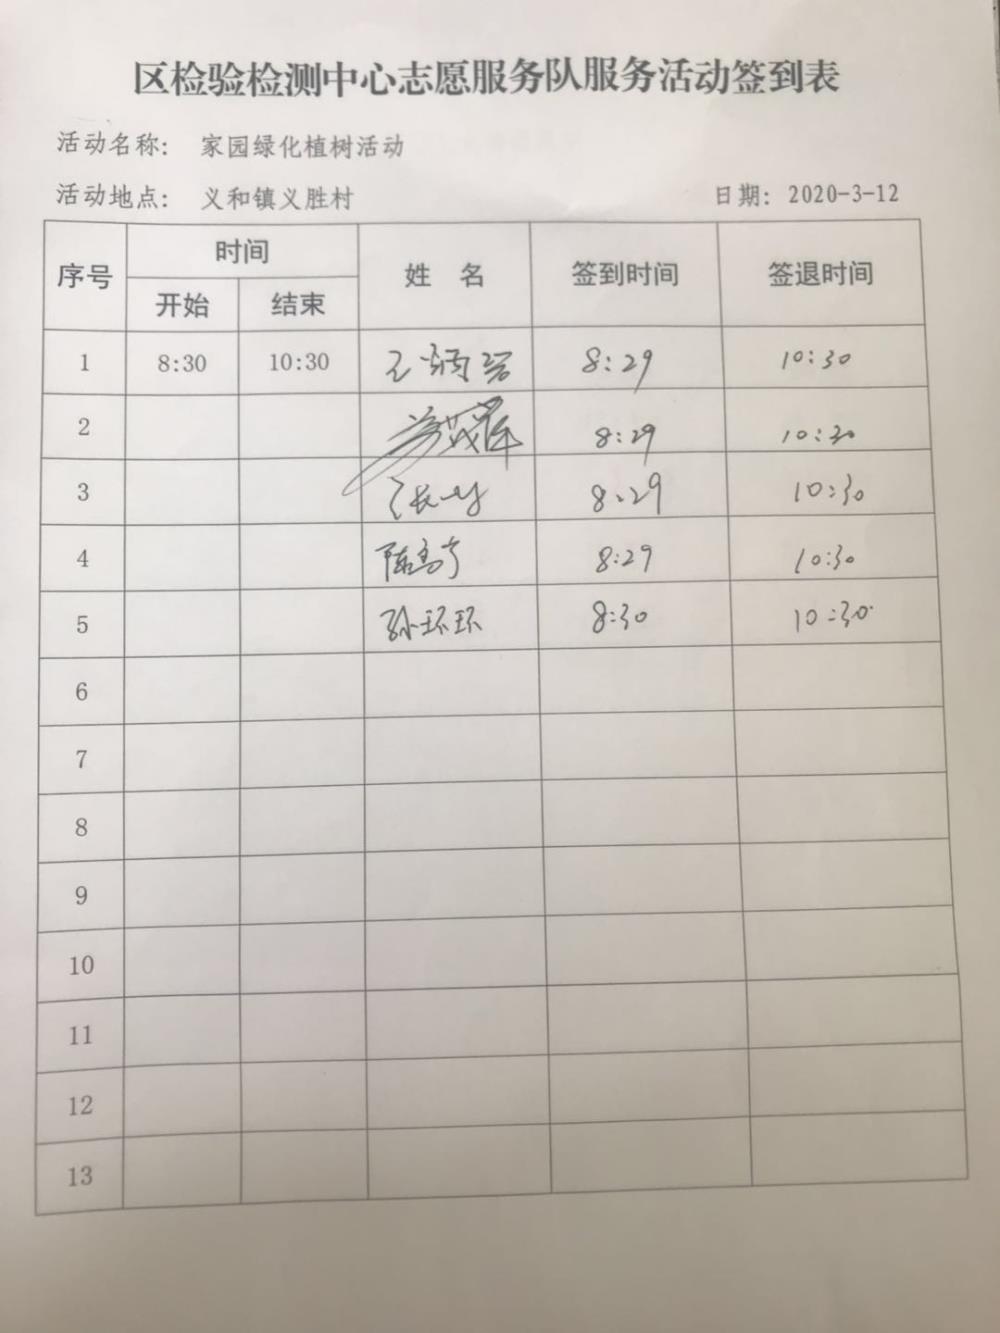 区检验检测中心志愿服务队服务活动签到表
活动名称： 家园绿化植树活动
活动地点： 义和镇义胜村 日期：2020-3-12
序号 时间 姓 名 签到时间 签退时间
开始 结束
1 8:30 10:30 8:29 10:30
2 8:29 10:30
3 8:29 10:30
4 8:29 10:30
5 孙环环 8:30 10:30
6
7
8
9
10
11
12
13